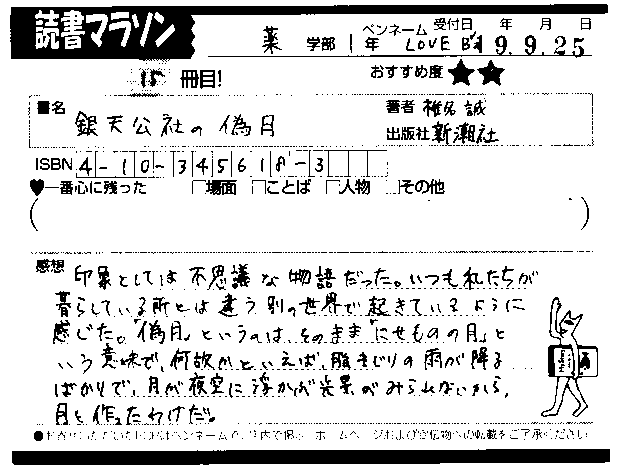 読書マラソン
薬 学部 1年 ペンネーム LOVE B'z 受付日 年 月 日
19.9.25
15 冊目! おすすめ度 ★★
書名 銀天公社の偽月
著者 椎名誠
出版社 新潮社
ISBN 4-10-345618-3
♥一番心に残った □場面 □ことば □人物 □その他
感想 印象としては不思議な物語だった。いつも私たちが
暮らしている所とは違う別の世界で起きているように
感じた。「偽月」というのは、そのまま「にせものの月」と
いう意味で、何故かといえば、脂まじりの雨が降る
ばかりで、月が夜空に浮かぶ光景がみられないから、
月を作ったわけだ。